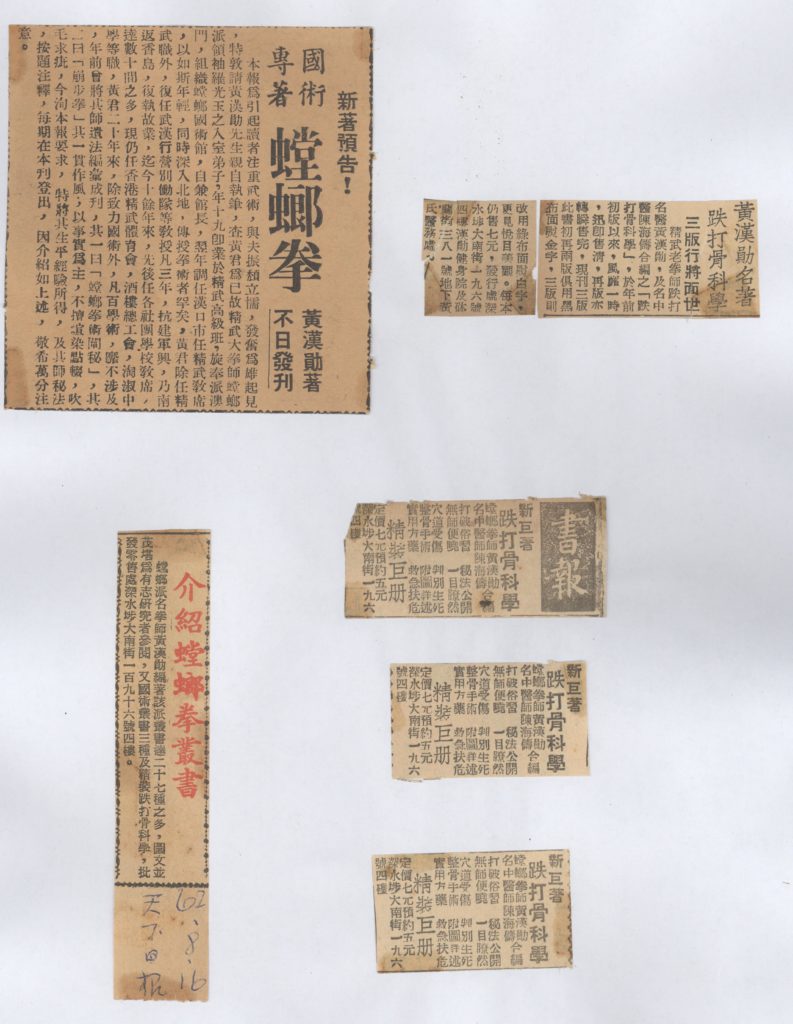 新著預告！
國術
專著
螳螂拳
黃漢勛著
不日發刋
本報爲引起讀者注重武術，與夫振頽立懦，發奮爲雄起見
，特敦請黃漢勛先生親自執筆，查黃君爲已故精武大拳師螳螂
派領袖羅光玉之入室弟子，年十九卽業於精武高級班，旋奉派澳
門，組織螳螂國術館，自兼館長，翌年調任漢口市任精武敎席
，以如斯年輕，同時深入北地，傳授拳術者罕矣，黃君除任精
武職外，復任武漢行營別働隊等敎授凡三年，抗建軍興，乃南
返香島，復執故業，迄今十餘年來，先後任各社團學校敎席，
達數十間之多，現仍任香港精武體育會，酒樓總工會，淘淑中
學等職，黃君二十年來，除致力國術外，凡百學術，靡不涉及
，年前曾將其師遺法編彙成刋，其一曰「螳螂拳術闡秘」，其
二曰「崩步拳」其一貫作風，以事實爲主，不擅渲染點綴，吹
毛求疵，今洵本報要求，特將其生平經驗所得，及其師秘法
，按題注釋，每期在本刋登出，因介紹如上述，敬希萬分注
意。
黃漢勛名著
跌打骨科學
三版行將面世
精武老拳師跌打
名醫黃漢勛，及名中
醫陳海儔合編之「跌
打骨科學」，於年前
初版以來，風靡一時
，迅卽售淸，再版亦
轉瞬售完，現刋三版
此書初再兩版俱用黑
布面燙金字，三版則
改用綠布面燙白字，
更見悅目美觀。每本
仍售七元，發行處深
水埗大南街一九六號
四樓漢勛健身院及砵
蘭街三八一號地下黃
氏醫務處。
書報
新巨著
跌打骨科學
螳螂拳師黃漢勛
名中醫師陳海儔合編
打破俗習　秘法公開
無師便曉　一目瞭然
穴道受傷　判別生死
整骨手術　附圖詳述
實用方藥　救急扶危
精裝巨册
定價七元預約五元
深水埗大南街一九六
號四樓
新巨著
跌打骨科學
螳螂拳師黃漢勛
名中醫師陳海儔合編
打破俗習　秘法公開
無師便曉　一目瞭然
穴道受傷　判別生死
整骨手術　附圖詳述
實用方藥　救急扶危
精裝巨册
定價七元預約五元
深水埗大南街一九六
號四樓
新巨著
跌打骨科學
螳螂拳師黃漢勛
名中醫師陳海儔合編
打破俗習　秘法公開
無師便曉　一目瞭然
穴道受傷　判別生死
整骨手術　附圖詳述
實用方藥　救急扶危
精裝巨册
定價七元預約五元
深水埗大南街一九六
號四樓
介紹螳螂拳叢書
螳螂派名拳師黃漢勛編著該派叢書達二十七種之多，圖文並
茂堪爲有志硏究者參閱，又國術叢書三種及精裝跌打骨科學，批
發零售處深水埗大南街一百九十六號四樓。
62.8.16
天下日报